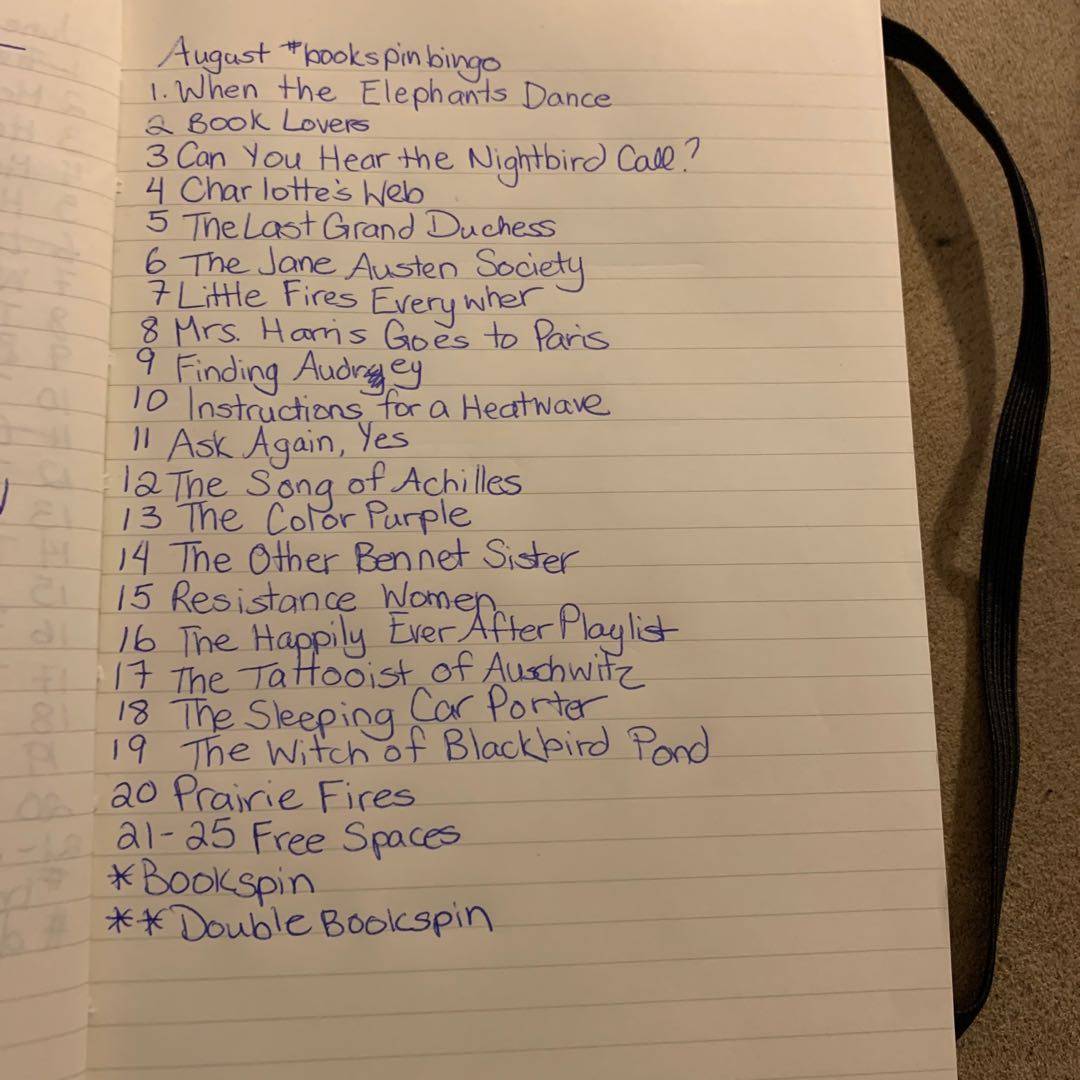 August #bookspinbingo
1. When the Elephants Dance
2 Book Lovers
3 Can You Hear the Nightbird Call?
4 Charlotte's Web
5 The Last Grand Duchess
6 The Jane Austen Society
7 Little Fires Everywher
8 Mrs. Harris Goes to Paris
9 Finding Audrey
10 Instructions for a Heatwave
11 Ask Again, Yes
12 The Song of Achilles
13 The Color Purple
14 The Other Bennet Sister
15 Resistance Women
16 The Happily Ever After Playlist
17 The Tattooist of Auschwitz
18 The Sleeping Car Porter
19 The Witch of Blackbird Pond
20 Prairie Fires
21-25 Free Spaces
*Bookspin
**Double Bookspin